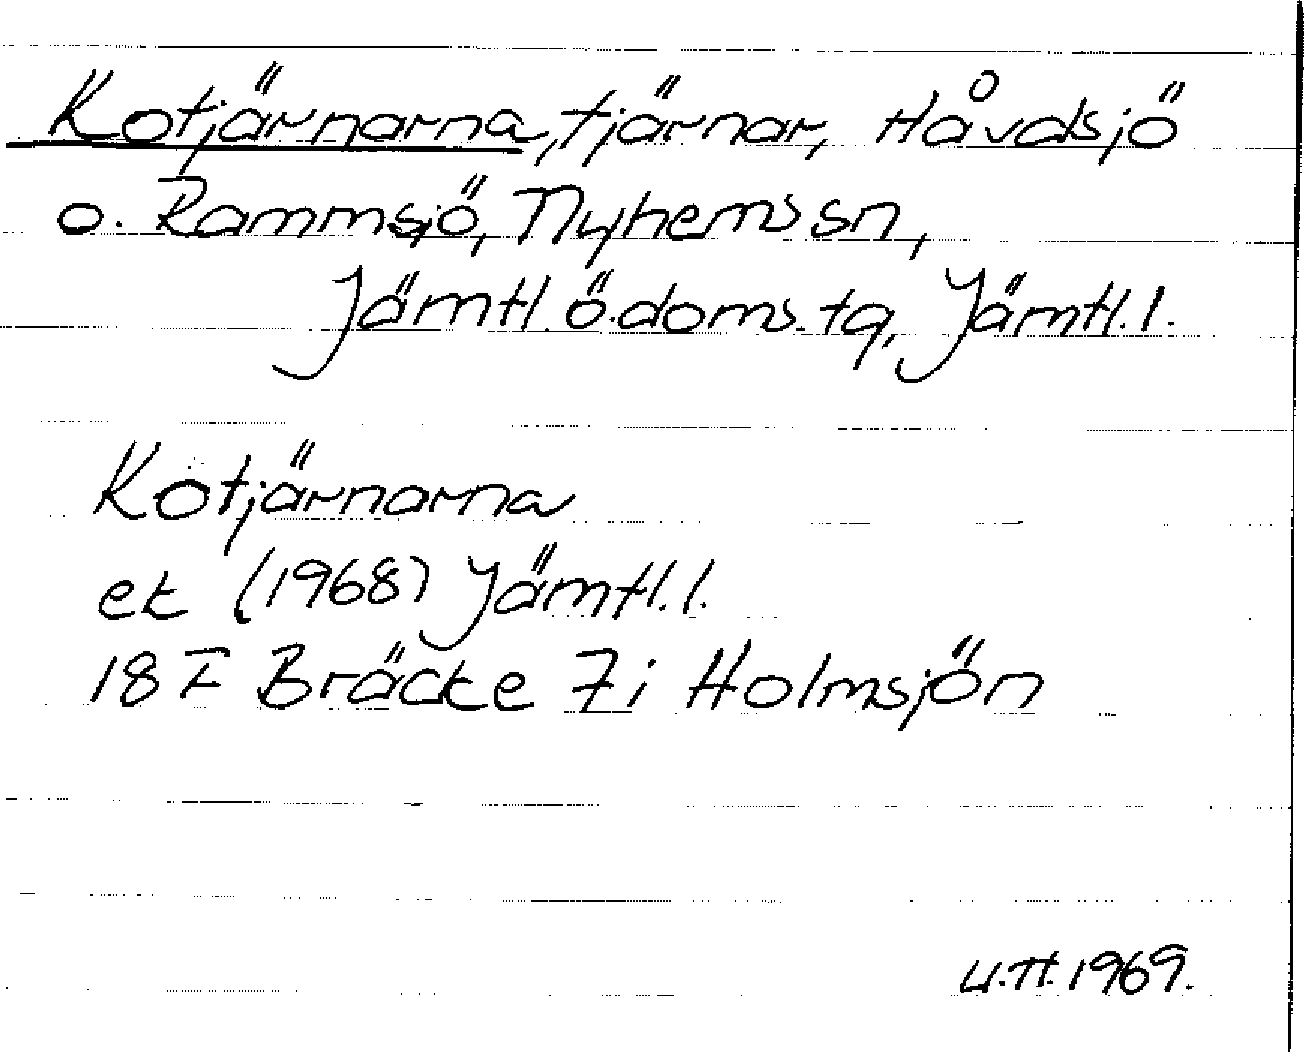 Kotjärnarna, tjärnar, Håvdsjö
o. Rammsjö, Nyhems sn,
Jämtl. ö. doms. tg, Jämtl. l.
Kotjärnarna
ek (1968) Jämtl. l.
18 F Bräcke 7i Holmsjön
U.H. 1969.